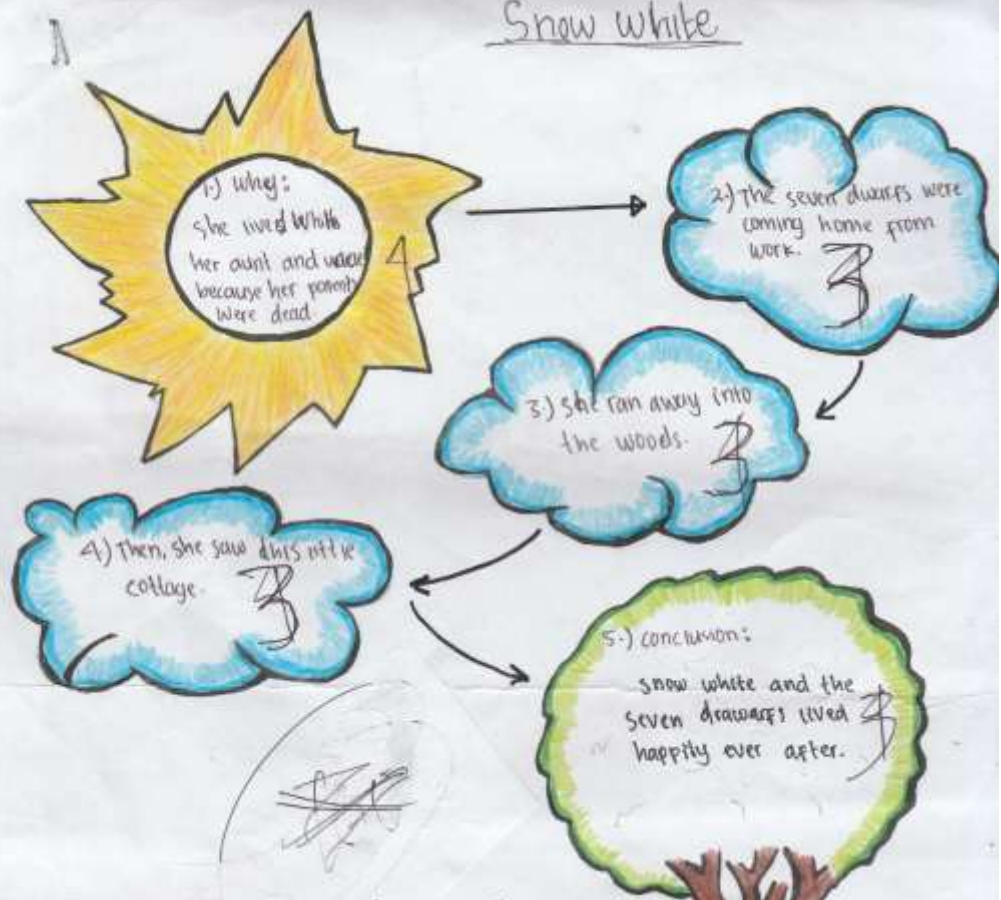 Snow White
1.) why:
she lived With
her aunt and
because her parents
were dead
4
2.) The seven dwarfs were
coming home from
work.
3
3.) she ran away into
the woods.
4.) Then, she saw this little
cottage.
3
5.) conclusion:
snow white and the
seven drawarfs lived
happily ever after.
3